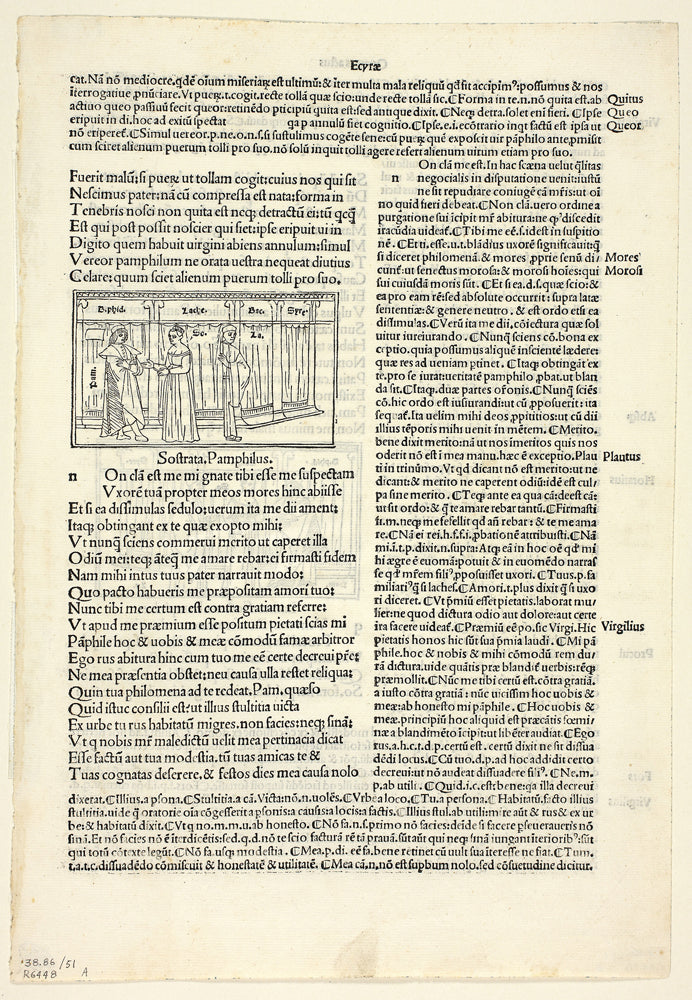 Ecyræ
cat. Nã nõ mediocre.qdẽ oĩum miseriaꝝ est ultimũ: & iter multa mala reliquũ qd sit accipim⁹: possumus & nos
iterrogatiue ꝓnũciare. Vt pueꝝ.t.cogit.recte tollã quæ scio: unde recte tollã sic. ℂForma in te.n.nõ quita est.ab
Quitus
actiuo queo passiuũ fecit queor: retinẽdo pticipiũ quita est: sed antique dixit. ℂNeqꝫ detra.solet eni fieri. ℂIpse
Queo
eripuit in di.hoc ad exitũ spectat qa p annulũ fiet cognitio. ℂIpse.e.i.ecõtrario inqt factũ est ipsa ut
Queor
nõ eriperet. ℂSimul uereor.p.ne.o.n.s.ũ sustulimus cogẽte sene: cũ pueꝝ quẽ exposcit uir pãphilo ante.pmisit
cum sciret alienum puerum tolli pro suo. nõ solũ inquit tolli agere refert alienum uirum etiam pro suo.
Fuerit malũ: si pueꝝ ut tollam cogit: cuius nos qui sit
Nescimus pater: nã cũ compressa est nata: forma in
Tenebris nosci non quita est neqꝫ detractũ ei: tũ qcꝗ̃
Est qui post possit noscier qui siet: ipse eripuit ui in
Digito quem habuit uirgini abiens annulum: simul
Vereor pamphilum ne orata uestra nequeat diutius
Celare: quum sciet alienum puerum tolli pro suo.
Lache.
Bac.
Pam.
So.
Sostrata. Pamphilus.
n On clã est me mi gnate tibi esse me suspectam
Vxorẽ tuã propter meos mores hinc abiisse
Et si ea dissimulas sedulo: uerum ita me dii ament:
Itaqꝫ obtingant ex te quæ exopto mihi:
Vt nunꝗ̃ sciens commerui merito ut caperet illa
Odiũ mei: teqꝫ ãteq̃ me amare rebar: ei firmasti fidem
Nam mihi intus tuus pater narrauit modo:
Quo pacto habueris me præpositam amori tuo:
Nunc tibi me certum est contra gratiam referre:
Vt apud me præmium esse positum pietati scias mi
Pãphile hoc & uobis & meæ cõmodũ famæ arbitror
Ego rus abitura hinc cum tuo me eẽ certe decreui pr̃e:
Ne mea præsentia obstet: neu causa ulla restet reliqua:
Quin tua philomena ad te redeat. Pam. quæso
Quid istuc consilii est? ut illius stultitia uicta
Ex urbe tu rus habitatũ migres. non facies: neqꝫ sinã:
Vt q nobis mr̃ maledictũ uelit mea pertinacia dicat
Esse factũ aut tua modestia. tũ tuas amicas te &
Tuas cognatas deserere. & festos dies mea causa nolo
On clã me est. In hac scæna uelut q̃litas
n negocialis in disputatione uenit: iustũ
ne sit repudiare coniugẽ cã mr̃is: ut oĩ
no quid fieri debeat. ℂNon clã. uero ordine a
purgatione sui icipit mr̃ abitura: ne qꝫ discedit
iracũdia uideat. ℂTibi me eẽ.s.i dest in suspitio
nẽ. ℂEt ti.esse.u.t.blãdius uxorẽ significauit: ꝗ
si diceret philomenã. & mores ꝓprie senũ di/
Mores
cunt: ut senectus morosa: & morosi hoies: qui
Morosi
sui cuiusdã moris sũt. ℂEt si ea.d.s.quæ scio: &
ea pro eam rẽ: sed absolute occurrit: supra latæ
sententiæ: & genere neutro. & est ordo etsi ea
dissimulas. ℂVerũ ita me dii. cõiectura quæ sol
uitur iureiurando. ℂNunꝗ̃ sciens cõ.bona ex
ceptio. quia possumus aliquẽ inscientẽ lædere:
quæ res ad ueniam ptinet. ℂItaqꝫ obtingãt ex
te. pro se iurat: ueritatẽ pamphilo ꝓbat. ut blan
da sit. ℂItaqꝫ. duæ partes oronis. ℂNunꝗ̃ sciẽs
cõ. hic ordo est iusiurandi: ut cũ ꝓposuerit: ita
sequaẽ. Ita uelim mihi deos ꝓpitios: ut cũ dii
illius tẽporis mihi uenit in mẽtem. ℂMerito.
bene dixit merito: nã ut nos imeritos quis nos
oderit nõ est i mea manu. hæc ẽ exceptio. Plau
Plautus
ti in trinũmo. Vt qd dicant nõ est merito: ut ne
dicant: & merito ne caperent odiũ: idẽ est cul/
pa sine merito. ℂTeqꝫ ante ea qua cã: deest cã:
ut sit ordo: & q̃ te amare rebar tantũ. ℂFirmasti
fi.m. neqꝫ me fefellit qd añ rebar: & te me ama
re. ℂNã ei rei.h.f.f.i.ꝓbationẽ attribuisti. ℂNã
mi.i.t.p.dixit.n.supra: Atqꝫ eã in hoc oẽ qd mi
hi ægre ẽ euomã: potuit & in euomẽdo narras
se qd mr̃em fili⁹ ꝓposuisset uxori. ℂTuus.p.fa
miliari⁹ ꝗ̃ si laches. ℂAmori.t.plus dixit ꝗ̃ si uxo
ri diceret. ℂVt pmiũ esset pietatis. laborat mu/
lier: ne quod dictura odio aut dolore: aut certe
ira facere uideat. ℂPræmiũ eẽ po.sic Virgi. Hic
Virgilius
pietatis honos hic sũt sua pmia laudi. ℂMi pã
phile. hoc & nobis & mihi cõmodũ rem du/
rã dictura. uide quãtis præ blandit uerbis: rẽqꝫ
præmollit. ℂNũc me tibi certũ est. cõtra gratiã.
a iusto cõtra gratiã: nũc uicissim hoc uobis &
meæ: ab honesto mi pãphile. ℂHoc uobis &
meæ. principiũ hoc aliquid est præcãtis fœmi/
næ a blandimẽto icipit: ut libẽter audiat. ℂEgo
rus.a.h.c.t.d.p.certũ est. certũ dixit ne sit dissua
dẽdi locus. ℂCũ tuo.d.p.ad hoc addidit certo
decreui: ut nõ audeat dissuadere fili⁹. ℂNe.m.
p.ab utili. ℂQuid.i.c.est: bene: qa illa decreui
dixerat. ℂIllius.a psona. ℂStultitia.a cã. Victa: nõ.n.uolẽs. ℂVrbe a loco. ℂTu.a persona. ℂHabitatũ. facto illius
stultitia. uide q̃ oratorie oia cõgesserit a psonis: a causis: a locis: a factis. ℂIllius stul.ab utili: mire aũt & rus & ex ur
be: & habitatũ dixit. ℂVt q no.m.m.u.ab honesto. ℂNõ fa.n.s.primo nõ facies: deide si facere pseueraueris nõ
sinã. Et nõ facies nõ ẽ iterdicẽtis: sed.q.d.nõ te scio facturã rẽ tã prauã. sũt aũt qui neqꝫ sinã iungant iterioribꝰ: sũt
qui totũ cõtexte legũt. ℂNõ fa.usqꝫ modestia. ℂMea.p.di.eẽ fa.bene retinet cũ uult sua iteresse ne fiat. ℂTum.
t.a.t.c.dissuadẽdo cõmiscuit & honestatẽ & utilitatẽ. ℂMea cã.n.nõ est supbum nolo. sed cõsuetudine dicitur.
38.86/51
R6448 A